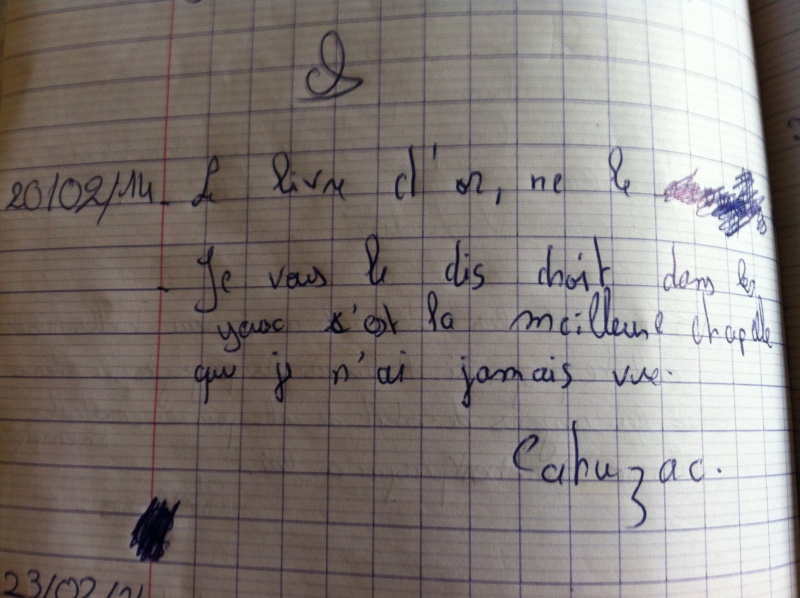 20/02/14. Le livre d'or, ne le
- Je vous le dis droit dans les
yeux s'est la meilleure chapelle
que je n'ai jamais vue.
Cahuzac.
23/02/14